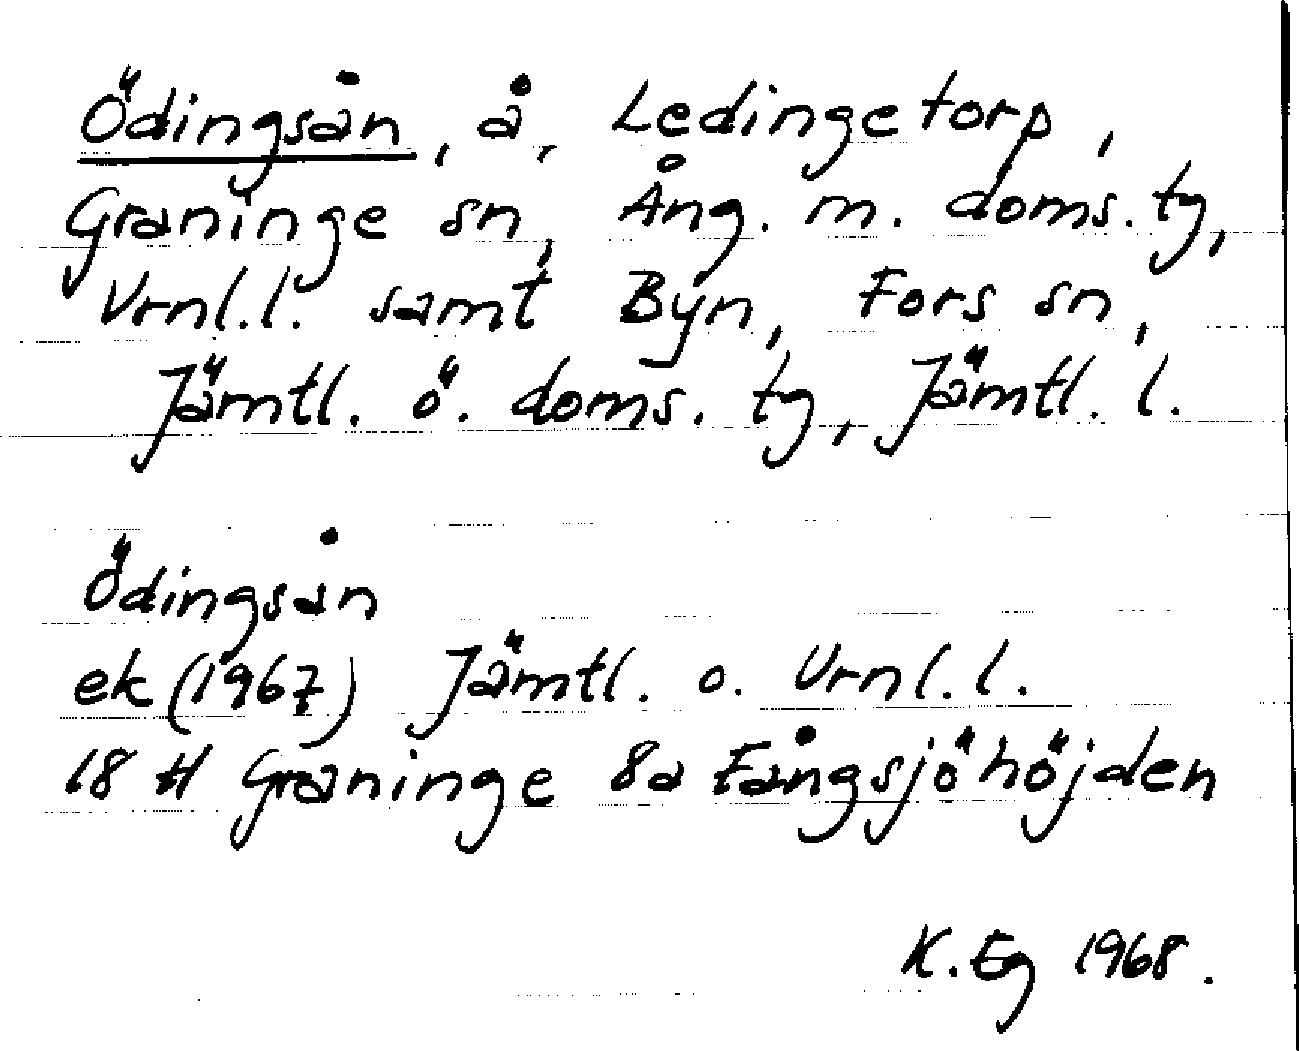 Ödingsån, å, Ledingetorp,
Graninge sn, Ång. m. doms. tg,
Vrnl. l. samt Byn, Fors sn,
Jämtl. ö. doms. tg, Jämtl. l.
Ödingsån
ek (1967) Jämtl. o. Vrnl. l.
18 H Graninge 8a Fångsjöhöjden
K. Eg 1968.